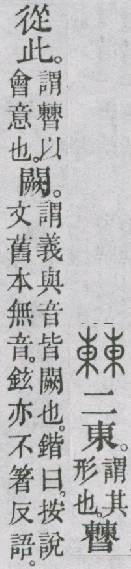 㯥二東。謂其形也。𣍘
從此。謂𣍘以會意也。闕。謂義與音皆闕也。鍇曰。按說文舊本無音。鉉亦不箸反語。